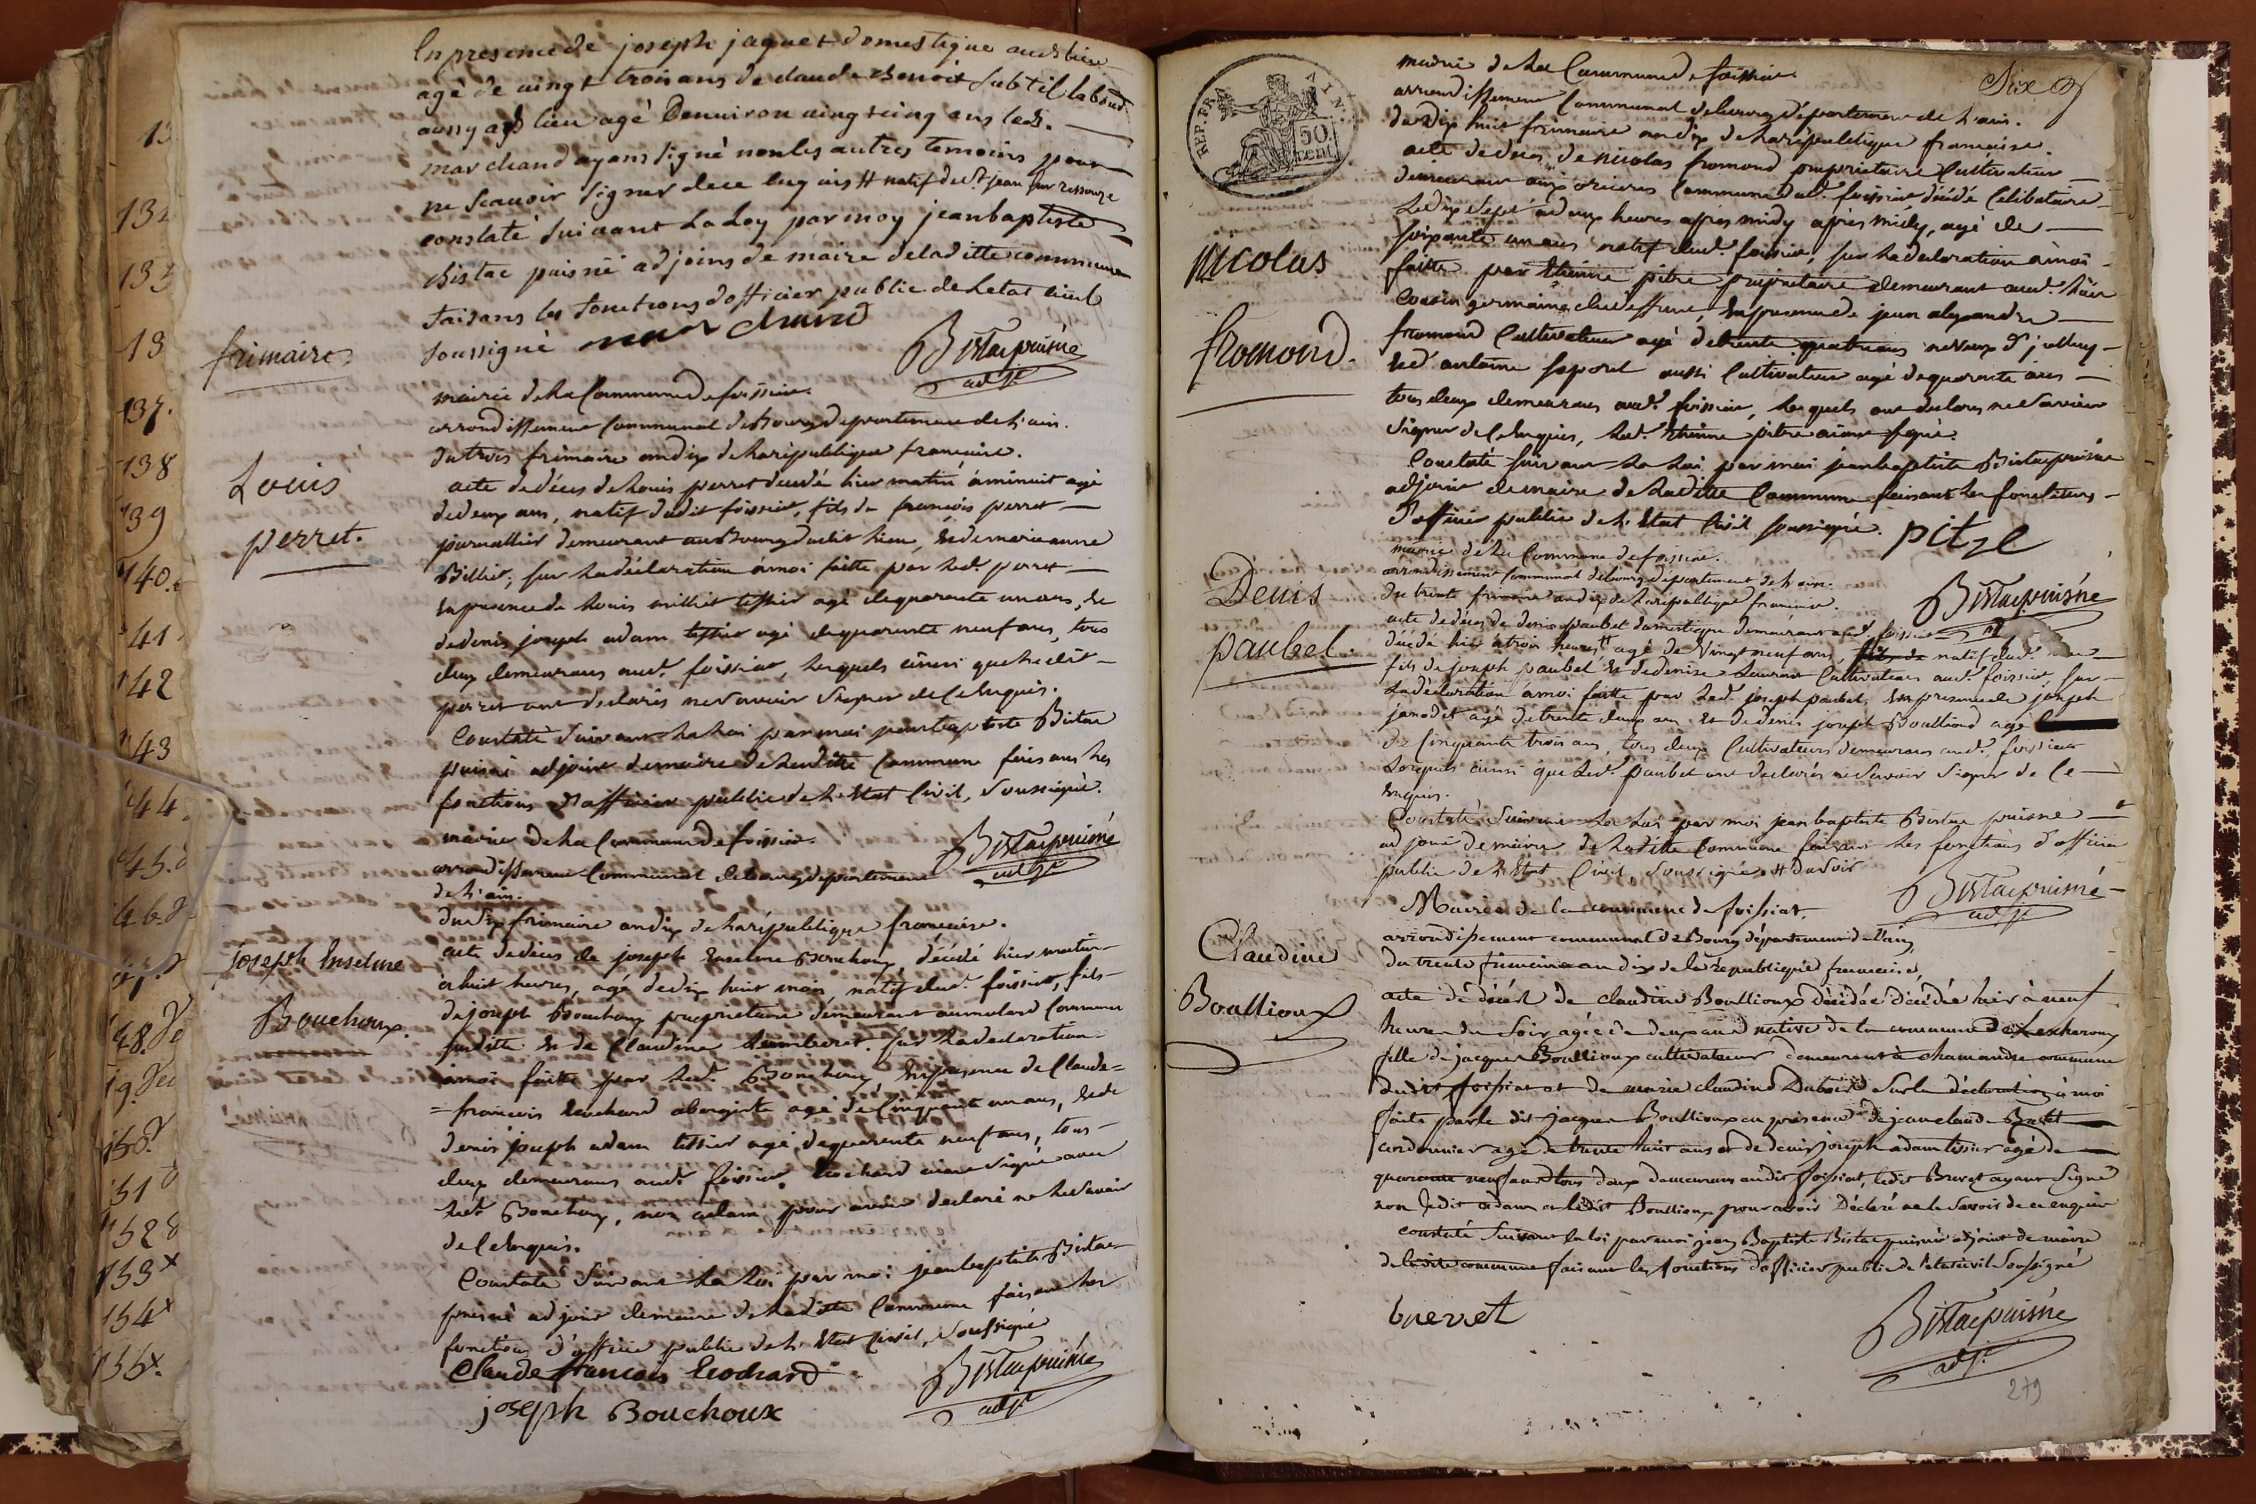 En presence de joseph jaquet domestique audt lieu
agé de vingt trois ans de claude Benoit Subtil
aussy audt lieu agé Denviron vingt cinq ans
marchand ayans signé non les autres temoins pour
ne Scavoir signer dece enquis # natif de st jean sur ressouze
constaté suivant La Loy par moy jean baptiste
Bistac puisné adjoins de maire delad itte commune
faisans les fonctions dofficier public de letat civil
Soussigné marchand
Bistac puisné
adjt
frimaire
mairie de la Commune de foissiat.
arrondissement Communal de Bourg departement de l'ain.
du trois frimaire an dix de la republique francaise.
Louis
perret.
acte de décès de Louis perret décédé hier matin à minuit agé
de deux ans, natif dudit foissiat, fils de francois perret
journallier demeurant au Bourg dudit lieu, et de marie anne
Billiet; sur la déclaration à moi faitte par led. perret
en presence de Louis millet tissier agé de quarante un ans, et
de denis joseph adam tissier agé de quarante neuf ans, tous
deux demeurans aud. foissiat, lesquels ainsi que ledit
perret ont declarés ne savoir signer de ce enquis.
Constaté suivant la Loi par moi jean baptiste Bistac
puisné adjoint de maire de laditte Commune faisans les
fonctions d'officier public de l'Etat Civil, soussigné.
Bistac puisné
adjt
mairie de la Commune de foissiat.
arrondissement Communal de bourg departement
de l'ain.
du dix frimaire an dix de la république francaise.
Joseph Enselme
Bouchoux.
acte de décès de joseph Enselme Bouchoux décédé hier matin
à huit heures, agé de dix huit mois, natif dud. foissiat, fils
de joseph Bouchoux proprietaire demeurant au Commune
susditte et de Claudine sur la declaration
à moi faitte par led. Bouchoux en presence de Claude
francois Leochard abergiste agé de Cinquante un ans, et de
denis joseph adam tissier agé de quarante neuf ans, tous
deux demeurans aud. foissiat, Leochard aiant signé avec
led. Bouchoux, non adam pour avoir declaré ne le Savoir
de Ce Enquis.
Constaté suivant la Loi par moi jean baptiste Bistac
puisné adjoint de maire de laditte Commune faisant les
fonctions d'officier public de l'Etat Civil, soussigné
Claude francois Leochard
joseph Bouchoux
Bistac puisné
adjt
REP. FRA. AIN.
50
cent
Six
mairie de la Commune de foissiat
arrondissement Communal de bourg departement de l'ain.
du dix huit frimaire an dix de la république francaise.
Nicolas
fromond.
acte de décès de Nicolas fromond proprietaire Cultivateur
demeurant aux Commune dud. foissiat décédé Celibataire
le dix sept à deux heures apres midy apres midy, agé de
soixante un ans natif dud. foissiat, sur la declaration à moi
faitte par Etienne pitre proprietaire demeurant aud. lieu
Cousin germain du deffunt, en presence de jean alexandre
fromond Cultivateur agé de trente quatre ans neveux
et d'antoine saporet aussi Cultivateur agé de quarante ans
tous deux demeurans aud. foissiat, lesquels ont declarés ne savoir
signer de Ce Enquis, led. Etienne pitre aiant signé.
Constaté suivant la Loi par moi jean baptiste Bistac puisné
adjoint de maire de laditte Commune faisant les fonctions
d'officier public de l'Etat Civil soussigné.
pitre
Bistac puisné
mairie de la Commune de foissiat.
arrondissement Communal de bourg departement de l'ain.
du trente frimaire an dix de la republique francaise.
Denis
paubel
acte de décès de denis paubel domestique demeurant aud. foissiat
décédé hier à trois heures # agé de Vingt neuf ans, natif dud. lieu
fils de joseph paubel et de denise Cultivateur aud. foissiat, sur
la déclaration à moi faitte par led. joseph paubel, en presence de joseph
janodet agé de trente deux ans et de denis joseph Boullioud agé
de Cinquante trois ans, tous deux Cultivateurs demeurans aud. foissiat
lesquels ainsi que led. paubel ont declarés ne savoir signer de Ce
Enquis.
Constaté suivant la Loi par moi jean baptiste Bistac puisné
adjoint de maire de laditte Commune faisant les fonctions d'officier
public de l'Etat Civil, soussigné # du soir
Bistac puisné
adjt
Mairie de la commune de foissiat.
arrondissement communal de Bourg département de l'ain
du trente frimaire an dix de la republique francaise,
Claudine
Boullioux
acte de décès de claudine Boullioux décédée décédée hier à neuf
heures du soir agée de deux ans native de la commune de
fille de jacques Boullioux cultivateur demeurant à chamandre commune
dudit foissiat et de marie claudine Dubois sur la déclaration à moi
faite par le dit jacques Boullioux en présence de jean claude Brevet
cordonnier agé de trente huit ans et de denis joseph adam tissier agé de
quarante neuf ans tous deux demeurans audit foissiat, ledit Brevet ayant signé
non ledit adam et ledit Boullioux pour avoir déclaré ne le savoir de ce enquis
constaté suivant la loi par moi jean Baptiste Bistac puisné adjoint de maire
de ladite commune faisant les fonctions d'officier public de l'état civil soussigné
brevet
Bistac puisné
adjt
279